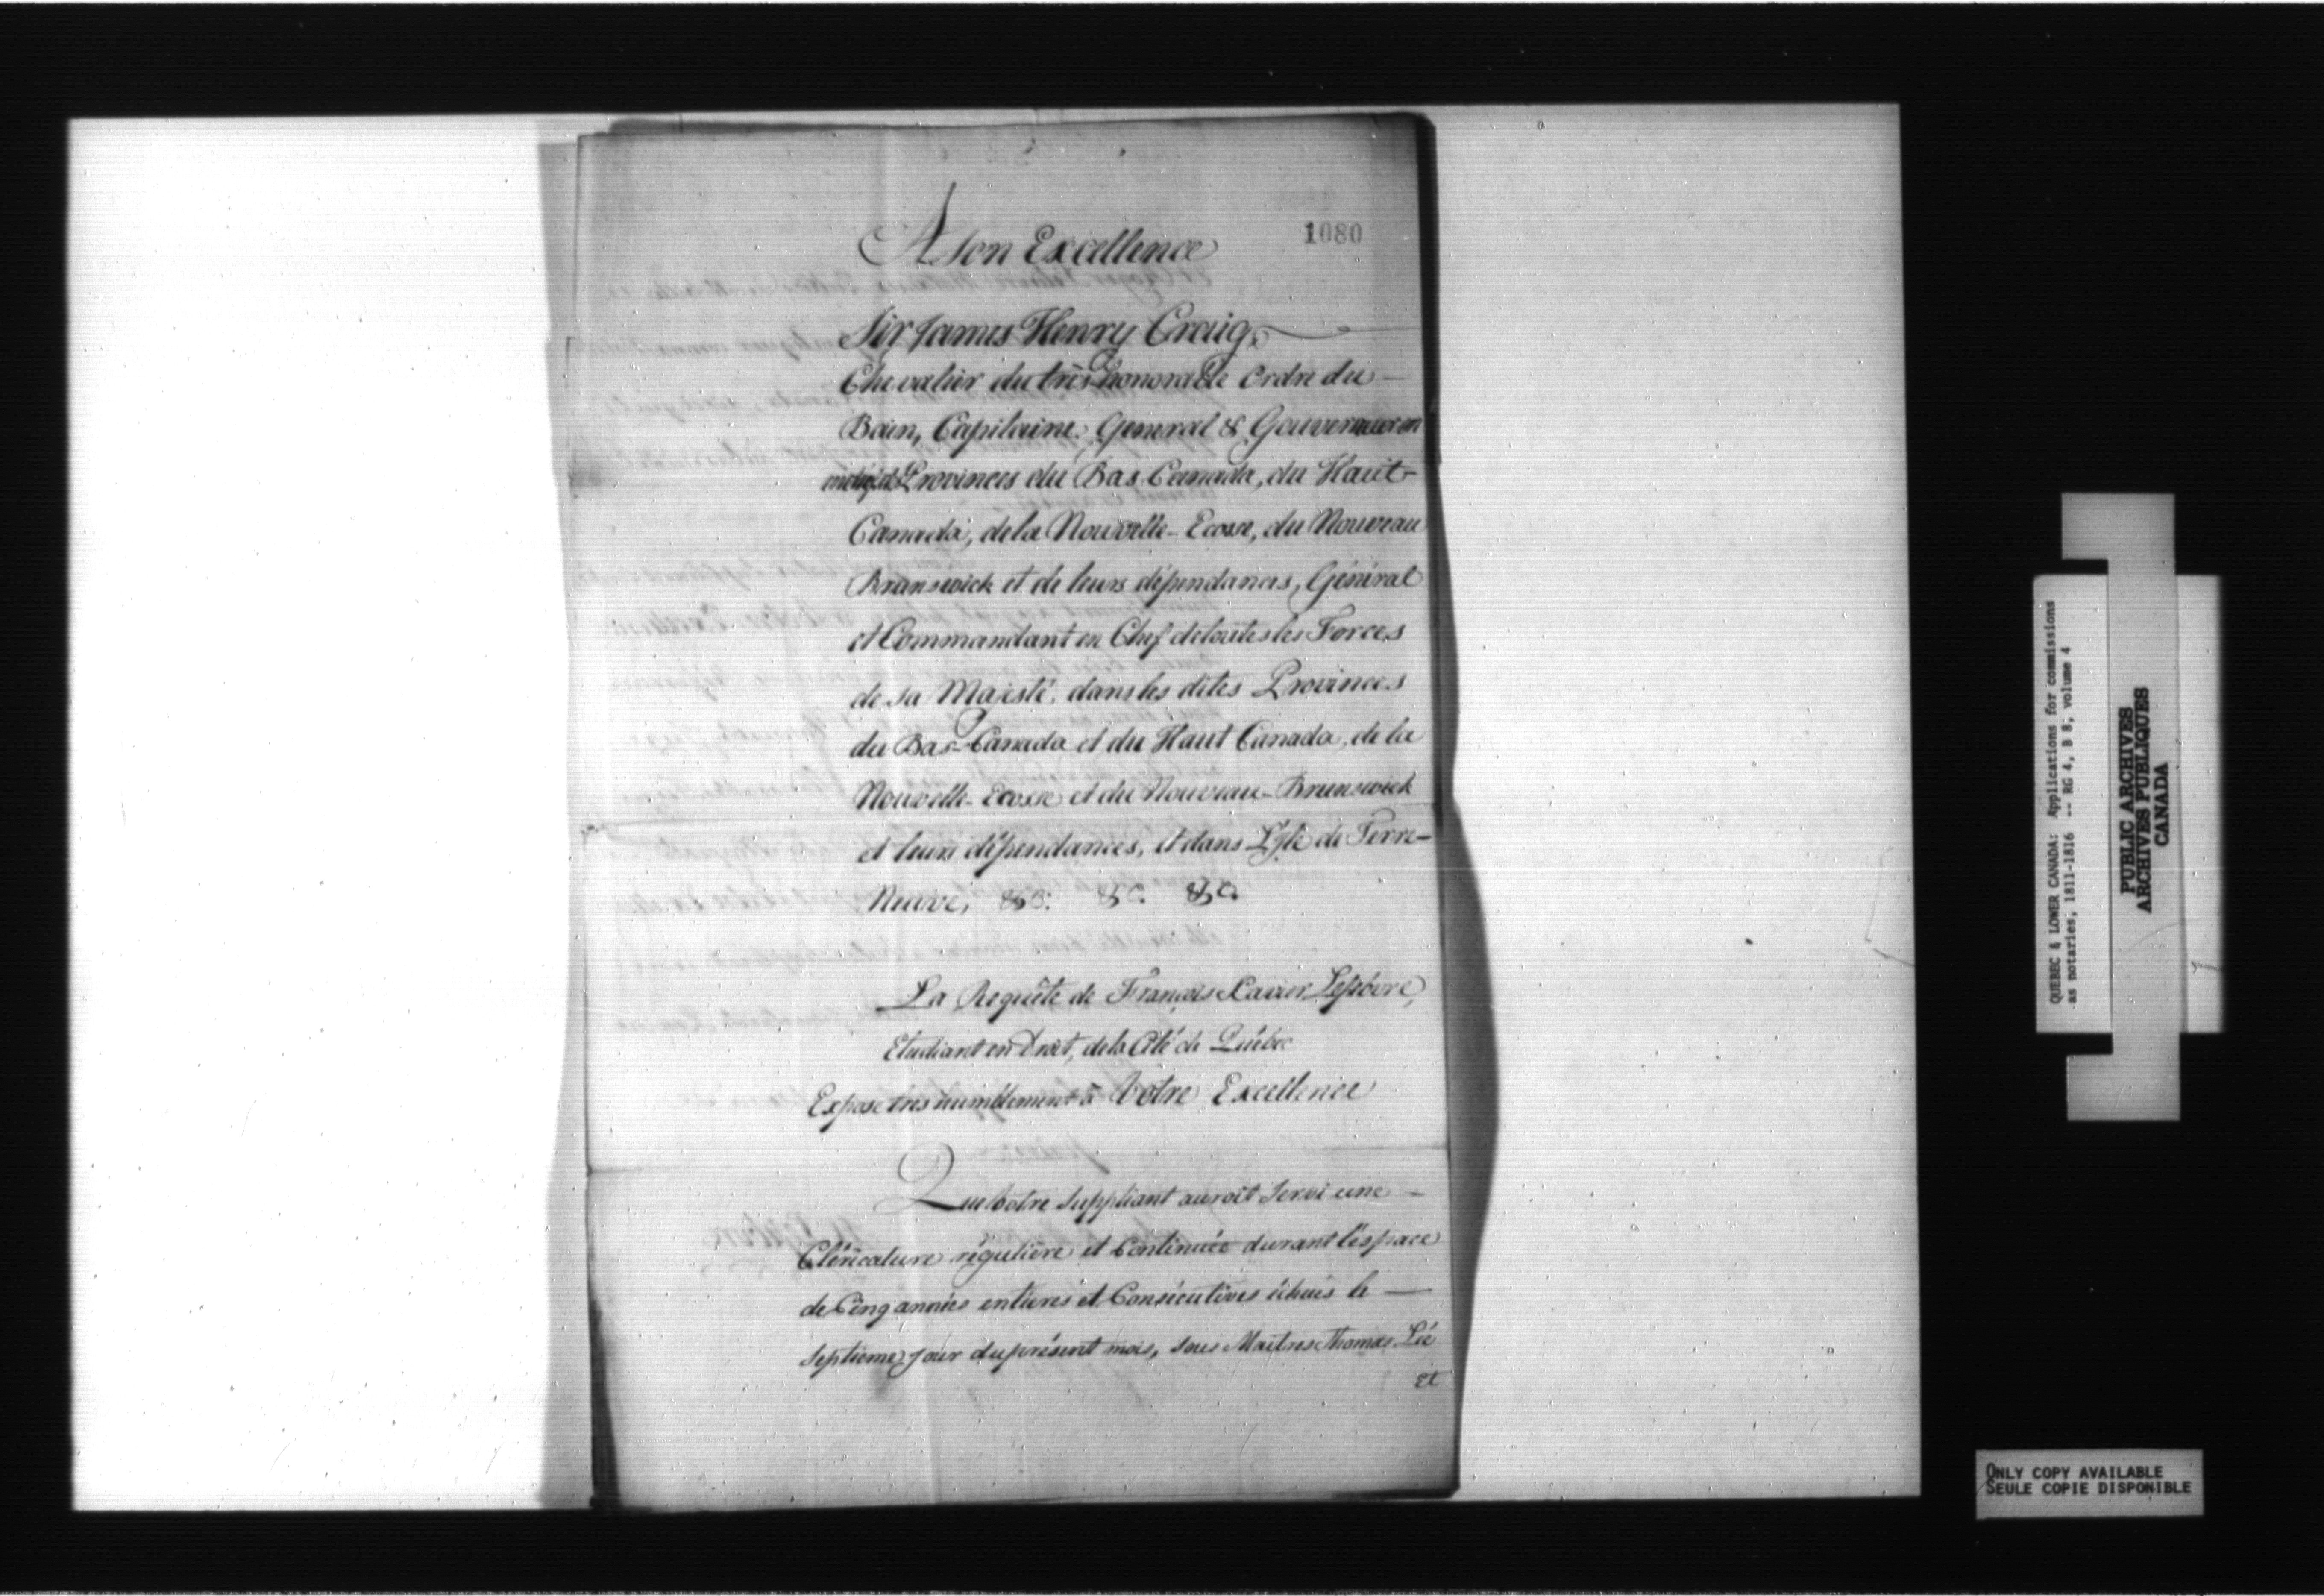 1080
A Son Excellence
Sir James Henry Craig,
Chevalier du très honorable Ordre du
Bain, Capitaine General & Gouverneur en
Provinces du Bas Canada, du Haut-
Canada, de la Nouvelle-Ecosse, du Nouveau
Brunswick et de leurs dépendances, Général
et Commandant en Chef de toutes les Forces
de sa Majesté, dans les dites Provinces
du Bas-Canada et du Haut Canada, de la
Nouvelle-Ecosse et du Nouveau-Brunswick
et leurs dépendances, et dans L'Ile de Terre-
Neuve, &c. &c. &c.
La Requête de François Xavier Lefebvre,
Etudiant en Droit, de la Cité de Québec
Expose très humblement à Votre Excellence
Que Votre Suppliant auroit Servi une
Cléricature régulière et Continuée durant l'espace
de Cinq années entieres et Consécutives échues le
Septieme jour du présent mois, sous Maitres Thomas Lée
et
QUEBEC & LOWER CANADA: Applications for commissions
as notaries, 1811-1816 -- RG 4, B 8, volume 4
PUBLIC ARCHIVES
ARCHIVES PUBLIQUES
CANADA
ONLY COPY AVAILABLE
SEULE COPIE DISPONIBLE